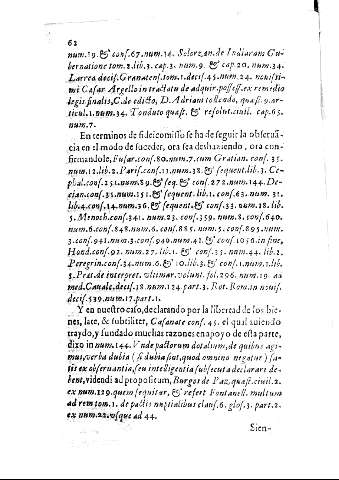 62
num.19. & cons.67.num.14. Solorz.an.de Indiarum Gu-
bernatione tom.2.lib.3. cap.3. num.9. & cap.20. num.34.
Larrea decis.Granatens.tom.1.decis.45.num.24. novissi-
mi Cæsar Argello in tractatu de adquir.possess.ex remedio
legis finalis, C. de edicto, D. Adriani tollendo, quæst.9.ar-
ticul.1.num.34. Tonduto quæst. & resolut.civil. cap.65.
num.7.
En terminos de fideicomisso se ha de seguir la observã-
cia en el modo de suceder, ora sea deshaziendo, ora con-
firmandole, Fusar.cons.80.num.7.cum Gratian. cons.35.
num.12.lib.2. Paris.cons.11.num.38. & sequent.lib.3. Ce-
phal.cons.251.num.89. & seq. & cons.272.num.144. De-
cian.cons.35.num.151. & sequent.lib.1. cons.63. num.31.
lib.4.cons.14.num.36. & sequent. & cons.33. num.18. lib.
5. Menoch.cons.341. num.23. cons.359. num.8. cons.640.
num.6.cons.848.num.6. cons.885. num.5. cons.895. num.
3.cons.941.num.3.cons.940.num.42. & cons.1056.in fine,
Hond.cons.92. num.27. lib.1. & cons.35. num.44. lib.2.
Peregrin.cons.34.num.6. & 10.lib.3. & cons.1.num.2.lib.
5. Prat.de interpret. ultimar.volunt. fol.296. num.19. ad
med.Cavalc.decis.18.num.124.part.3. Rot.Rom.in noviss.
decis.539.num.17.part.1.
Y en nuestro caso, declarando por la libertad de los bie-
nes, late, & subtiliter, Casanate cons. 45. el qual aviendo
traydo, y fundado muchas razones en apoyo de esta parte,
dixo in num.144. Unde pactorum dotalium, de quibus agi-
mus, verba dubia (si dubia sunt, quod omnino negatur) sa-
tis ex observantia, seu intelligentia subsecuta declarare de-
bent, videndi ad propositum, Burgos de Paz, quæst.civil.2.
ex num.129.quem sequitur, & refert Fontanell. multum
ad rem tom.1. de pactis nuptialibus claus.6. glos.3. part.2.
ex num.22. usque ad 44.
Sien-